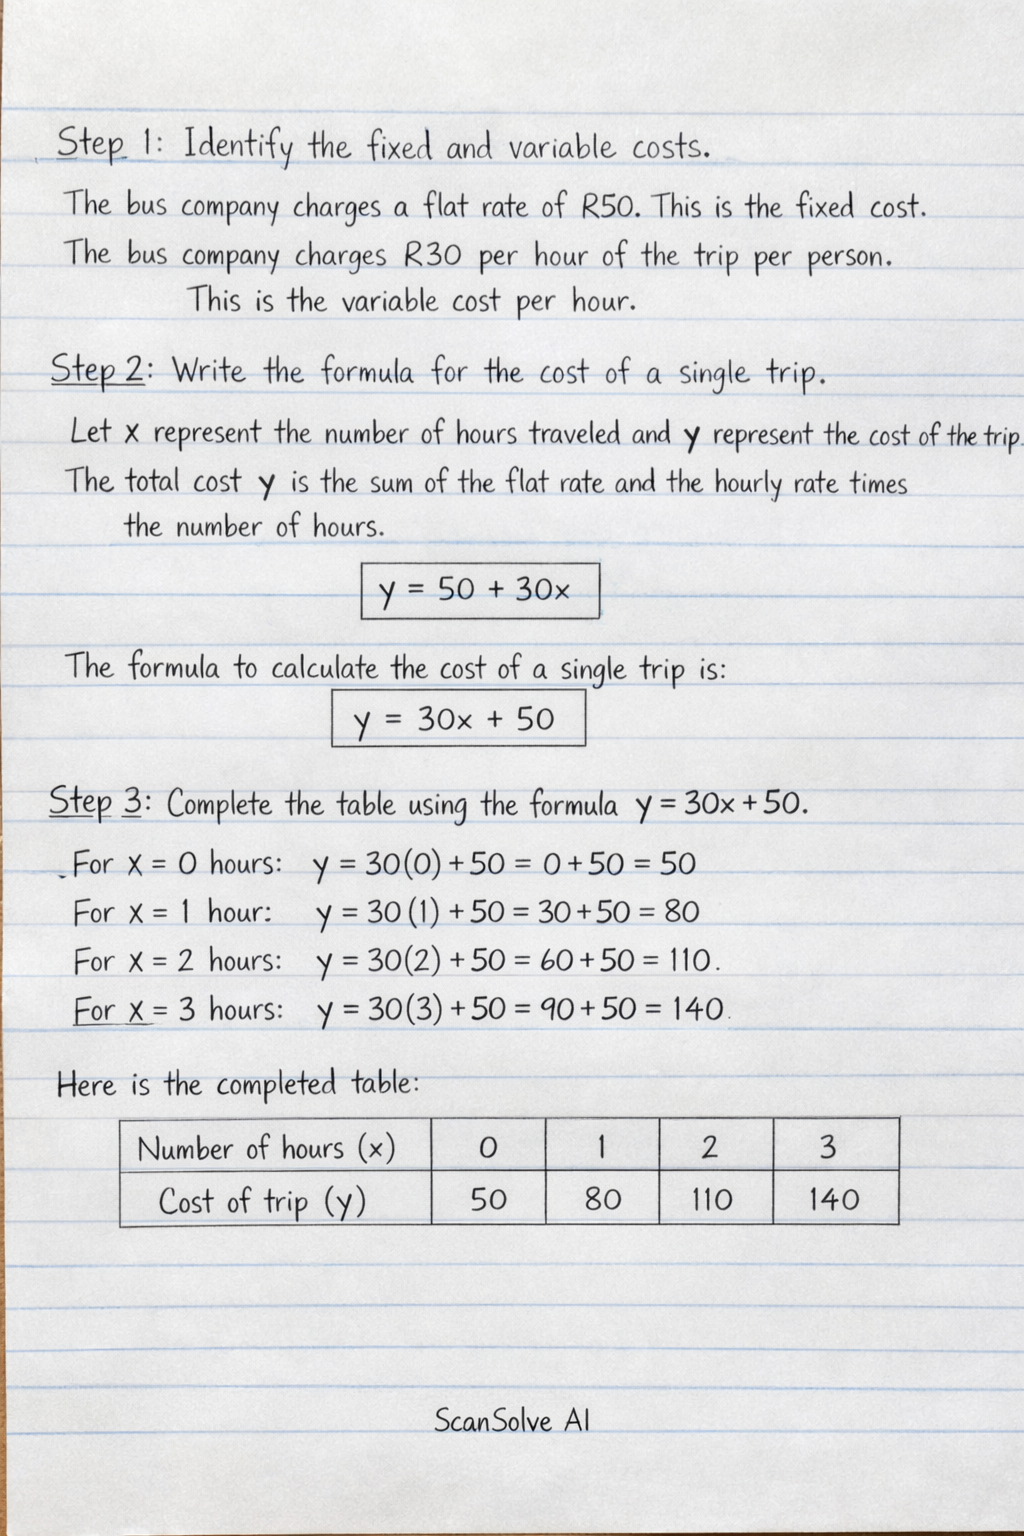 Step 1: Identify the fixed and variable costs.
The bus company charges a flat rate of R50. This is the fixed cost.
The bus company charges R30 per hour of the trip per person.
This is the variable cost per hour.
Step 2: Write the formula for the cost of a single trip.
Let x represent the number of hours traveled and y represent the cost of the trip.
The total cost y is the sum of the flat rate and the hourly rate times
the number of hours.
y = 50 + 30x
The formula to calculate the cost of a single trip is:
y = 30x + 50
Step 3: Complete the table using the formula y = 30x + 50.
For x = 0 hours: y = 30(0) + 50 = 0 + 50 = 50
For x = 1 hour: y = 30(1) + 50 = 30 + 50 = 80
For x = 2 hours: y = 30(2) + 50 = 60 + 50 = 110.
For x = 3 hours: y = 30(3) + 50 = 90 + 50 = 140.
Here is the completed table:
Number of hours (x) 0 1 2 3
Cost of trip (y) 50 80 110 140
ScanSolve AI